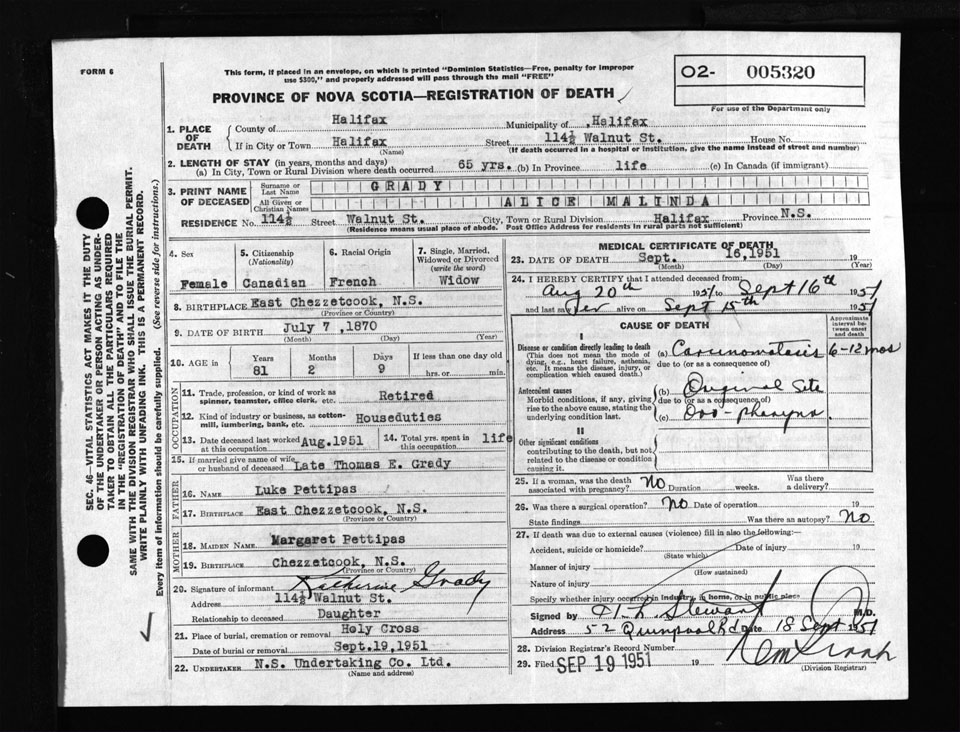 FORM 6
This form, if placed in an envelope, on which is printed "Dominion Statistics—Free, penalty for improper
use $300," and properly addressed will pass through the mail "FREE"
O2- 005320
For use of the Department only
PROVINCE OF NOVA SCOTIA—REGISTRATION OF DEATH
1. PLACE OF DEATH
County of Halifax Municipality of , Halifax
If in City or Town Halifax Street 114½ Walnut St. House No.
(Name) (If death occurred in a hospital or institution, give the name instead of street and number)
2. LENGTH OF STAY (in years, months and days)
(a) In City, Town or Rural Division where death occurred 65 yrs. (b) In Province life (c) In Canada (if immigrant)
3. PRINT NAME OF DECEASED
Surname or Last Name GRADY
All Given or Christian Names ALICE MALINDA
RESIDENCE No. 114½ Street Walnut St. City, Town or Rural Division Halifax Province N.S.
(Residence means usual place of abode. Post Office Address for residents in rural parts not sufficient)
4. Sex Female
5. Citizenship (Nationality) Canadian
6. Racial Origin French
7. Single, Married, Widowed or Divorced (write the word) Widow
8. BIRTHPLACE East Chezzetcook, N.S.
(Province or Country)
9. DATE OF BIRTH July 7 ,1870
(Month) (Day) (Year)
10. AGE in Years 81 Months 2 Days 9 If less than one day old hrs. or min.
OCCUPATION
11. Trade, profession, or kind of work as spinner, teamster, office clerk, etc. Retired
12. Kind of industry or business, as cotton-mill, lumbering, bank, etc. Houseduties
13. Date deceased last worked at this occupation Aug.1951
14. Total yrs. spent in this occupation life
15. If married give name of wife or husband of deceased Late Thomas E. Grady
FATHER
16. NAME Luke Pettipas
17. BIRTHPLACE East Chezzetcook, N.S.
(Province or Country)
MOTHER
18. MAIDEN NAME Margaret Pettipas
19. BIRTHPLACE Chezzetcook, N.S.
(Province or Country)
20. Signature of informant Katherine Grady
Address 114½ Walnut St.
Relationship to deceased Daughter
21. Place of burial, cremation or removal Holy Cross
Date of burial or removal Sept.19,1951
22. UNDERTAKER N.S. Undertaking Co. Ltd.
(Name and address)
MEDICAL CERTIFICATE OF DEATH
23. DATE OF DEATH Sept. 16,1951 19
(Month) (Day) (Year)
24. I HEREBY CERTIFY that I attended deceased from:
Aug 20th 1951 to Sept 16th 1951
and last saw her alive on Sept 15th 1951
CAUSE OF DEATH
Approximate interval between onset and death
I
Disease or condition directly leading to death
(This does not mean the mode of dying, e.g., heart failure, asthenia, etc. It means the disease, injury, or complication which caused death.)
(a) Carcinomatosis 6-12 mos
due to (or as a consequence of)
Antecedent causes
Morbid conditions, if any, giving rise to the above cause, stating the underlying condition last.
(b) Original Site
due to (or as a consequence of)
(c) Oro-pharynx.
II
Other significant conditions
contributing to the death, but not related to the disease or condition causing it.
25. If a woman, was the death associated with pregnancy? No Duration weeks. Was there a delivery?
26. Was there a surgical operation? No Date of operation 19
State findings Was there an autopsy? No
27. If death was due to external causes (violence) fill in also the following:
Accident, suicide or homicide? Date of injury 19
(State which)
Manner of injury
(How sustained)
Nature of injury
Specify whether injury occurred in industry, in home, or in public place
Signed by H L Stewart M.D.
Address 52 Quinpool Rd Date 18 Sept 1951
28. Division Registrar's Record Number
29. Filed SEP 19 1951 19
(Division Registrar)
SEC. 46—VITAL STATISTICS ACT MAKES IT THE DUTY
OF THE UNDERTAKER OR PERSON ACTING AS UNDER-
TAKER TO OBTAIN ALL THE PARTICULARS REQUIRED
IN THE "REGISTRATION OF DEATH" AND TO FILE THE
SAME WITH THE DIVISION REGISTRAR WHO SHALL ISSUE THE BURIAL PERMIT.
WRITE PLAINLY WITH UNFADING INK. THIS IS A PERMANENT RECORD.
Every item of information should be carefully supplied. (See reverse side for instructions.)